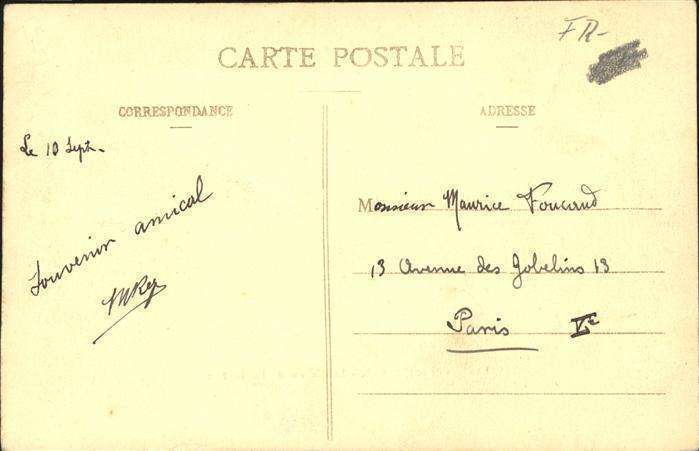 FR-
CARTE POSTALE
CORRESPONDANCE
Le 10 Sept.
Souvenir amical
MRey
ADRESSE
Monsieur Maurice Foucaud
13 Avenue des Gobelins 13
Paris Ve